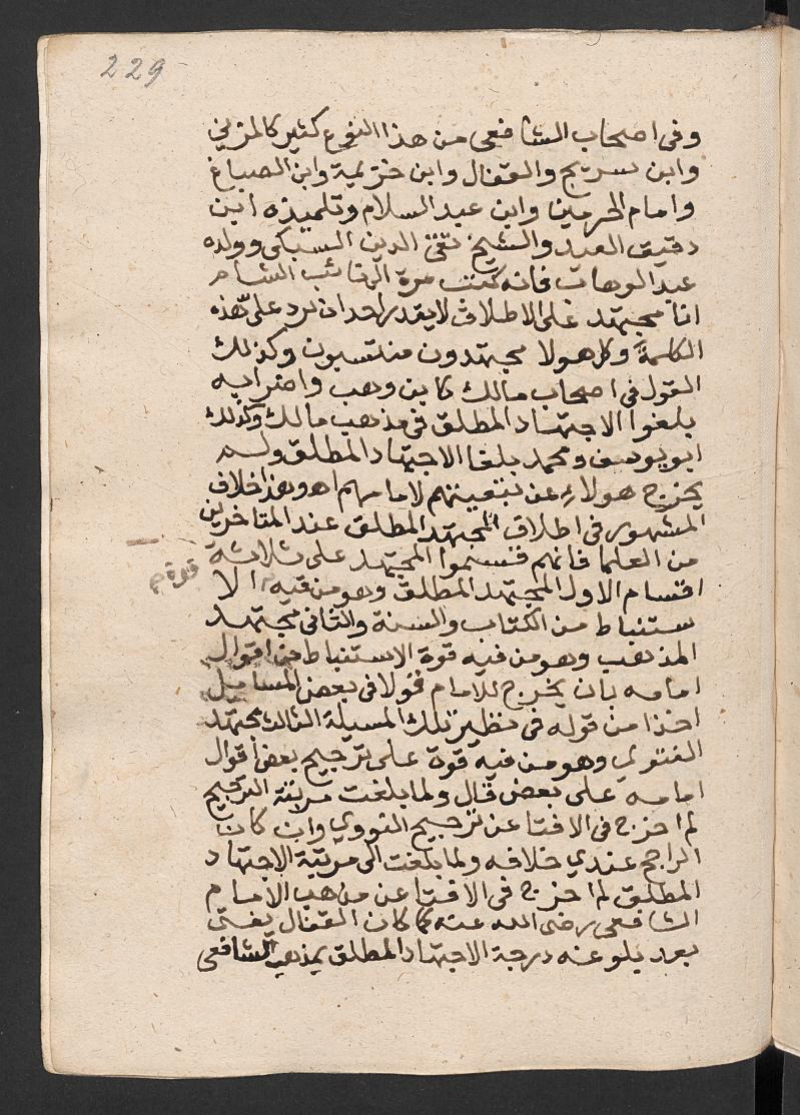 229
وفى اصحاب الشافعى من هذا النوع كثير كالمزني
وابن سريج والقفال وابن خزيمة وابن الصباغ
وامام الحرمين وابن عبد السلام وتلميذه ابن
دقيق العيد والشيخ تقى الدين السبكى وولده
عبد الوهاب فانه كتب مرة الى نائب الشام
انا مجتهد على الاطلاق لا يقدر احد ان يرد على هذه
الكلمة وكل هولا مجتهدون منتسبون وكذلك
القول فى اصحاب مالك كابن وهب واضرابه
بلغوا الاجتهاد المطلق فى مذهب مالك وكذلك
ابو يوسف ومحمد بلغا الاجتهاد المطلق ولم
يخرج هولاء عن تبعيتهم لامامهم اهو وهذا خلاف
المشهور فى اطلاق المجتهد المطلق عند المتاخرين
من العلما فانهم قسموا المجتهد على ثلاثة
اقسام الاول المجتهد المطلق وهو من فيه الا
قوة م
ستنباط من الكتاب والسنة والثانى مجتهد
المذهب وهو من فيه قوة الاستنباط من اقوال
امامه بان يخرج للامام قولا فى بعض المسايل
اخذا من قوله فى نظير تلك المسيلة الثالث مجتهد
الفتوي وهو من فيه قوة على ترجيح بعض اقوال
امامه على بعض قال ولما بلغت مرتبة الترجيح
لم اخرج فى الافتا عن ترجيح النووي وان كان
الراجح عندي خلافه ولما بلغت الى مرتبة الاجتهاد
المطلق لم اخرج فى الافتا عن مذهب الامام
الشافعى رضى الله عنه كما كان القفال يفتى
بعد بلوغه درجة الاجتهاد المطلق بمذهب الشافعى